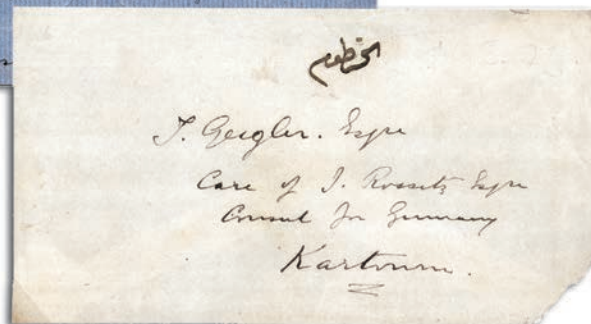 الخرطوم
J. Geigler. Esqre
Care of J. Rosset Esqre
Consul for Germany
Kartoum.